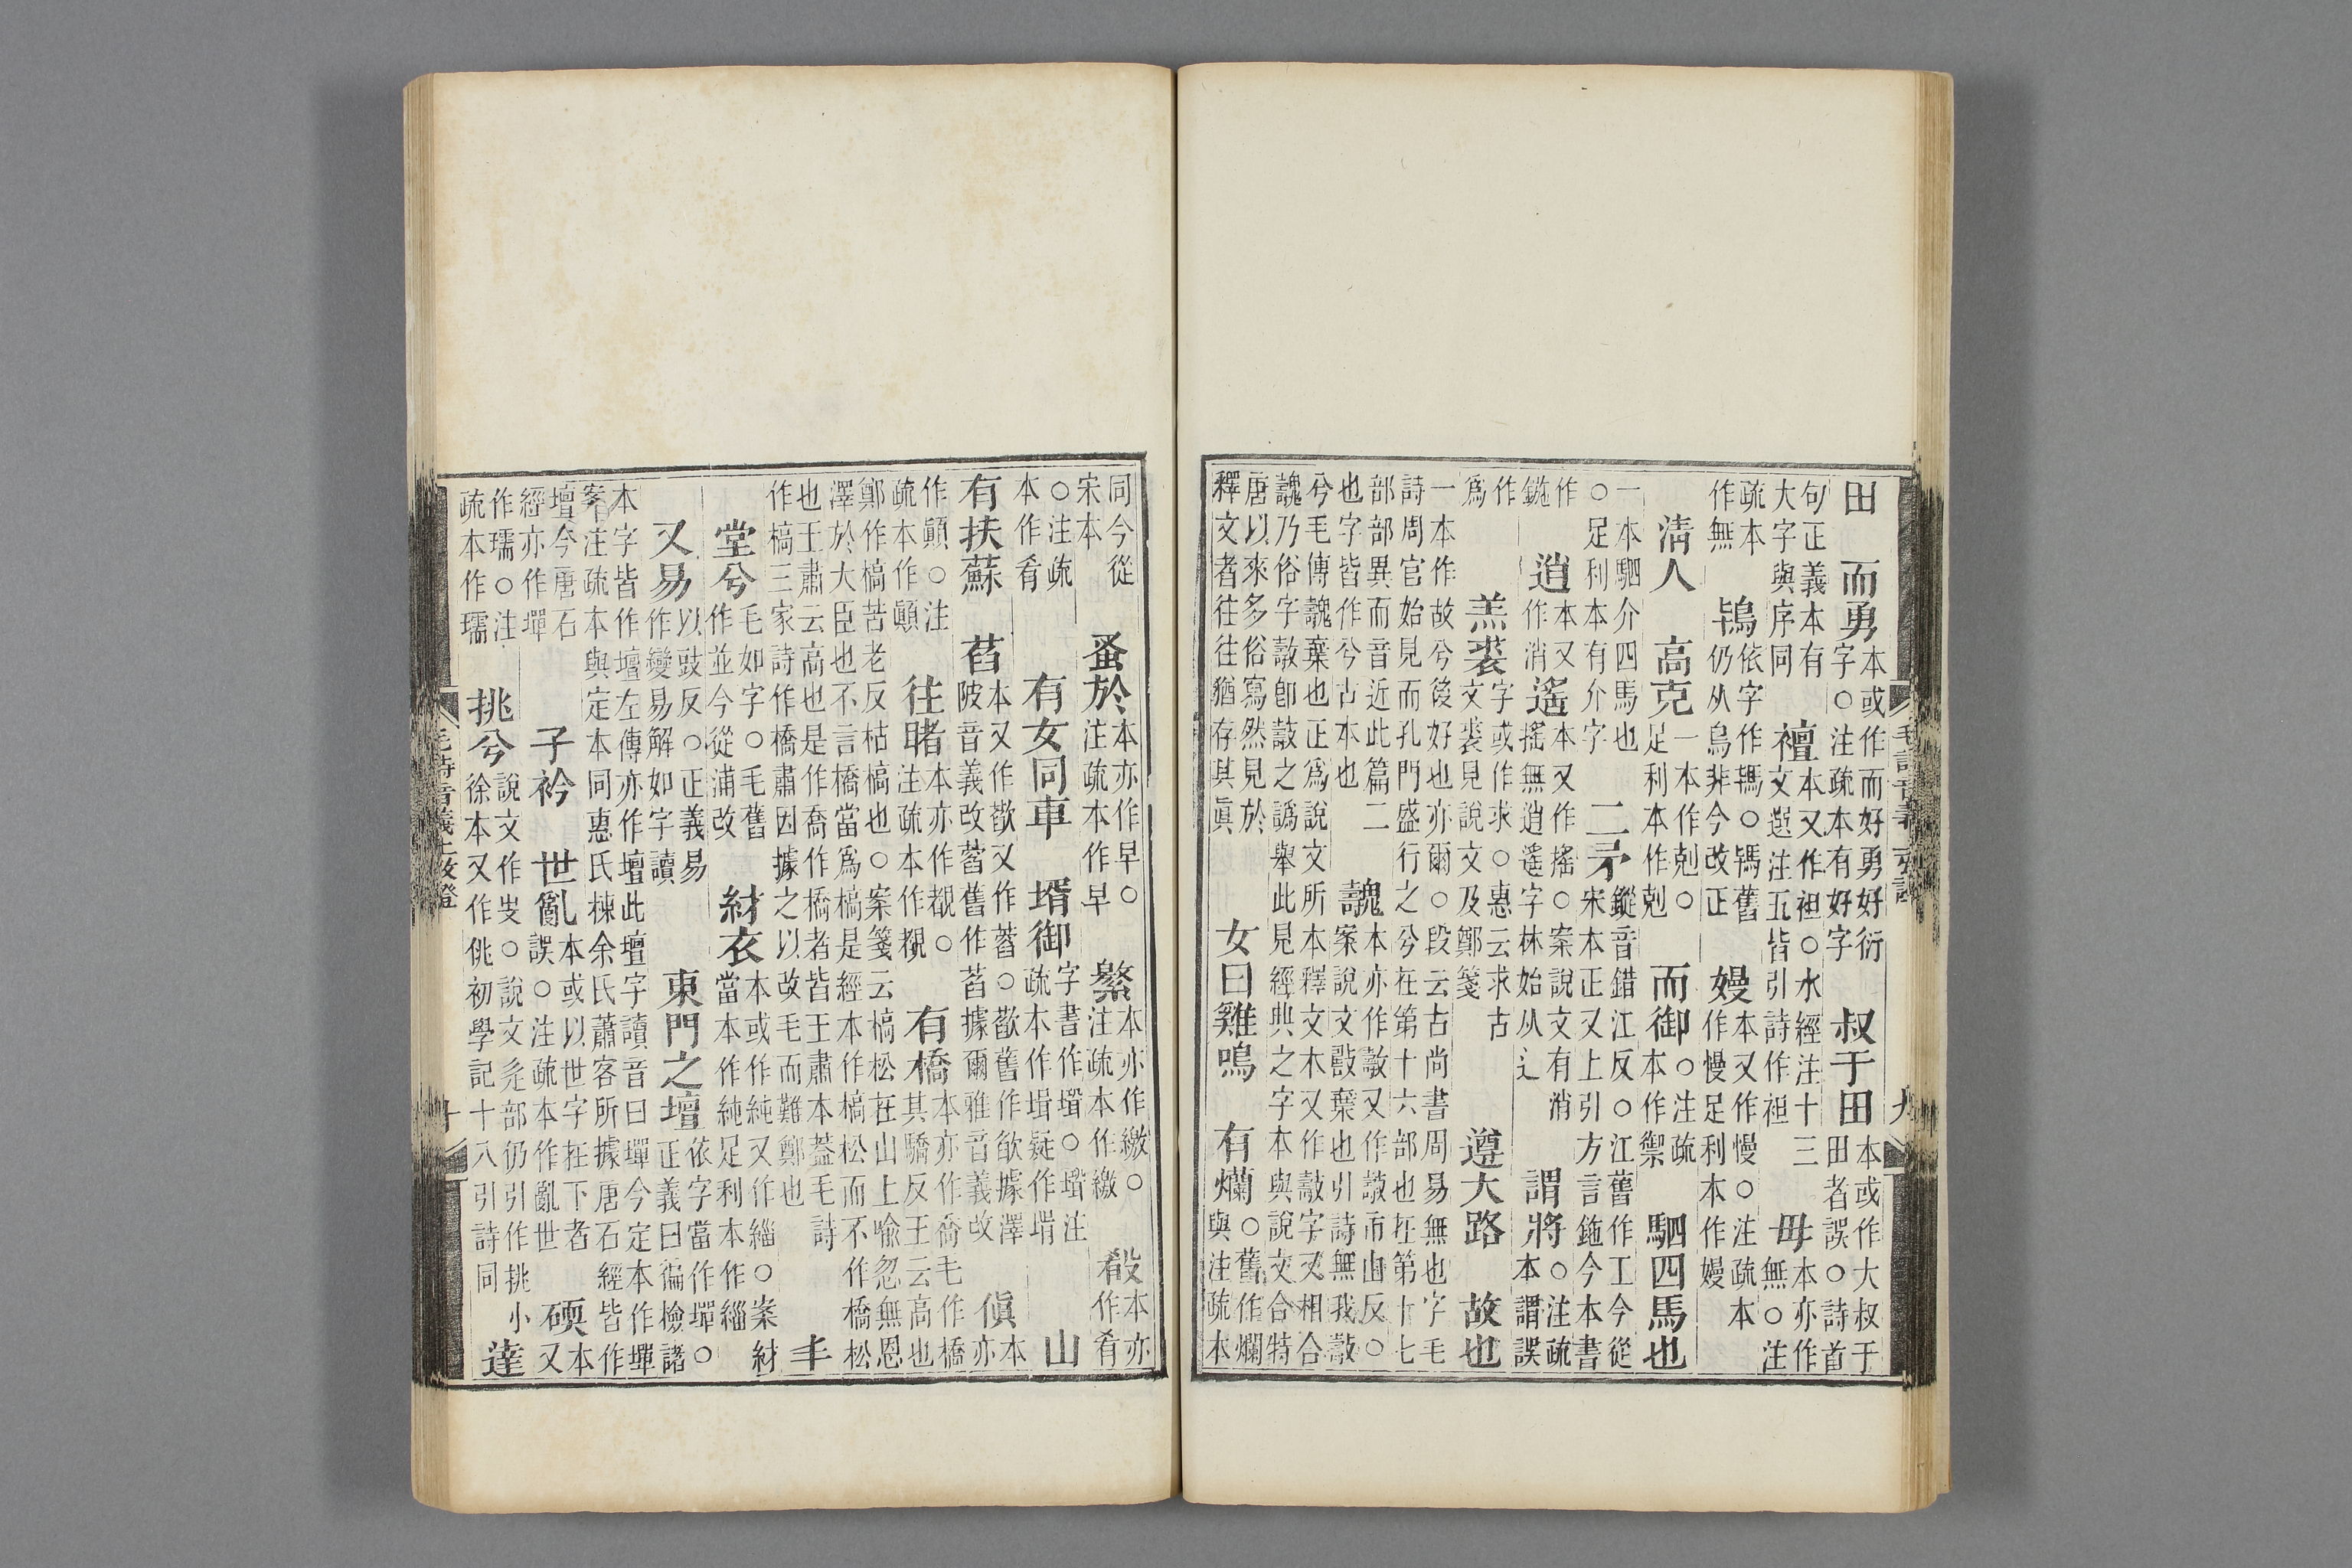 田　而勇
本或作而好勇好衍
字○注疏本有好字
叔于田
本或作大叔于
田者誤○詩首
句正義本有
大字與序同
襢
本又作袒○水經注十三
文選注五皆引詩作袒
毋
本亦作
無○注
疏本
作無
鴇
依字作䮸○鴇舊
仍从鳥非今改正
嫚
本又作慢○注疏本
作慢足利本作嫚
清人　高克
一本作剋○
足利本作剋
而御
○注疏
本作禦
駟四馬也
一本駟介四馬也
○足利本有介字
二矛
鏦音錯江反○江舊作工今從
宋本正又上引方言鉇今本書
作
鍦
逍
本又
作消
遙
本又作搖○案說文有消
搖無逍遙字字林始从辶
謂將
○注疏
本謂誤
作
爲
羔裘
字或作求○惠云求古
文裘見說文及鄭箋
遵大路　故也
一本作故兮後好也亦爾○段云古尚書周易無也字毛
詩周官始見而孔門盛行之兮在第十六部也在第十七
部部異而音近此篇二
也字皆作兮古本也
魗
本亦作㪏又作市由反○
案說文㪏棄也引詩無我㪏
兮毛傳魗棄也正爲說文所本釋文木又作㪏字又相合
魗乃俗字㪏卽之譌舉此見經典之字本與說文合特
唐以來多俗寫然見於
釋文者往往猶存其眞
女曰雞鳴　有爛
○舊作爛
與注疏本
毛詩音義上攷證　九
同今從
宋本
蚤於
本亦作早○
注疏本作早
繁
本亦作繳○
注疏本作繳
殽
本亦
作肴
○注疏
本作肴
有女同車　壻御
字書作○壻注
疏本作疑作壻
山
有扶蘇　萏
本又作歜又作○歜舊作欿據澤
陂音義改舊作萏據爾雅音義改
傎
本
亦
作顛○注
疏本作顚
往睹
本亦作覩○
注疏本作覩
有橋
本亦作喬毛作橋
其驕反王云高也
鄭作槁苦老反枯槁也○案箋云槁松在山上喻忽無恩
澤於大臣也不言橋當爲槁是經本作槁松而不作橋松
也王肅云高也是作喬作橋者皆王肅本蓋毛詩
作槁三家詩作橋肅因據之以改毛而難鄭也
丰
堂兮
毛如字○毛舊
作並今從浦改
紂衣
本或作純又作緇○案紂
當本作純足利本作緇
又易
以豉反○正義易
作變易解如字讀
東門之壇
依字當作墠○
正義曰徧檢諸
本字皆作壇左傳亦作壇此壇字讀音曰墠今定本作墠
案注疏本與定本同惠氏棟余氏蕭客所據唐石經皆作
壇今唐石
經亦作墠
子衿　世亂
本或以世字在下者
誤○注疏本作亂世
礝
本
又
作瓀○注
疏本作瓀
挑兮
說文作○說文辵部仍引作挑小
徐本又作佻初學記十八引詩同
達
毛詩音義上攷證　十